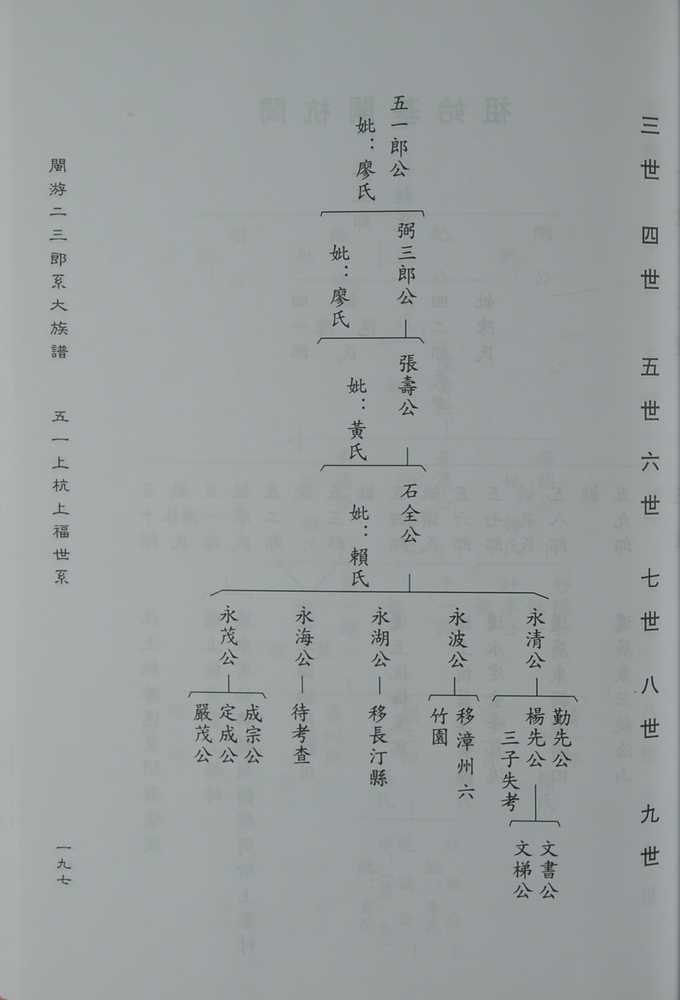 三世
四世
五世
六世
七世
八世
九世
五一郎公
妣：廖氏
弼三郎公
妣：廖氏
張壽公
妣：黃氏
石全公
妣：賴氏
永清公
永波公
永湖公
永海公
永茂公
勤先公
楊先公
三子失考
移漳州六
竹園
移長汀縣
待考查
成宗公
定成公
嚴茂公
文書公
文梯公
閩游二三郎系大族譜
五一上杭上福世系
一九七